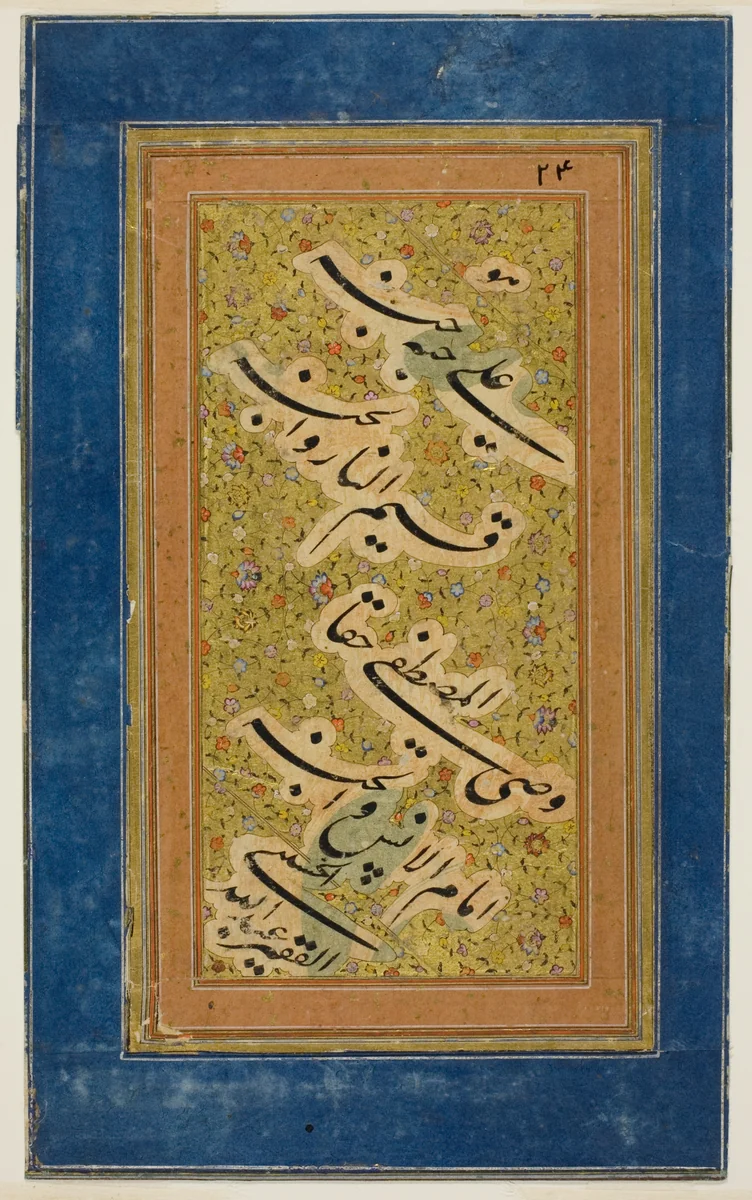 ۲۴
هو
علی حبه جنة
قسیم النار والجنة
وصی المصطفی حقا
امام الانس والجنة
الفقیر عبدالله
الحسینی